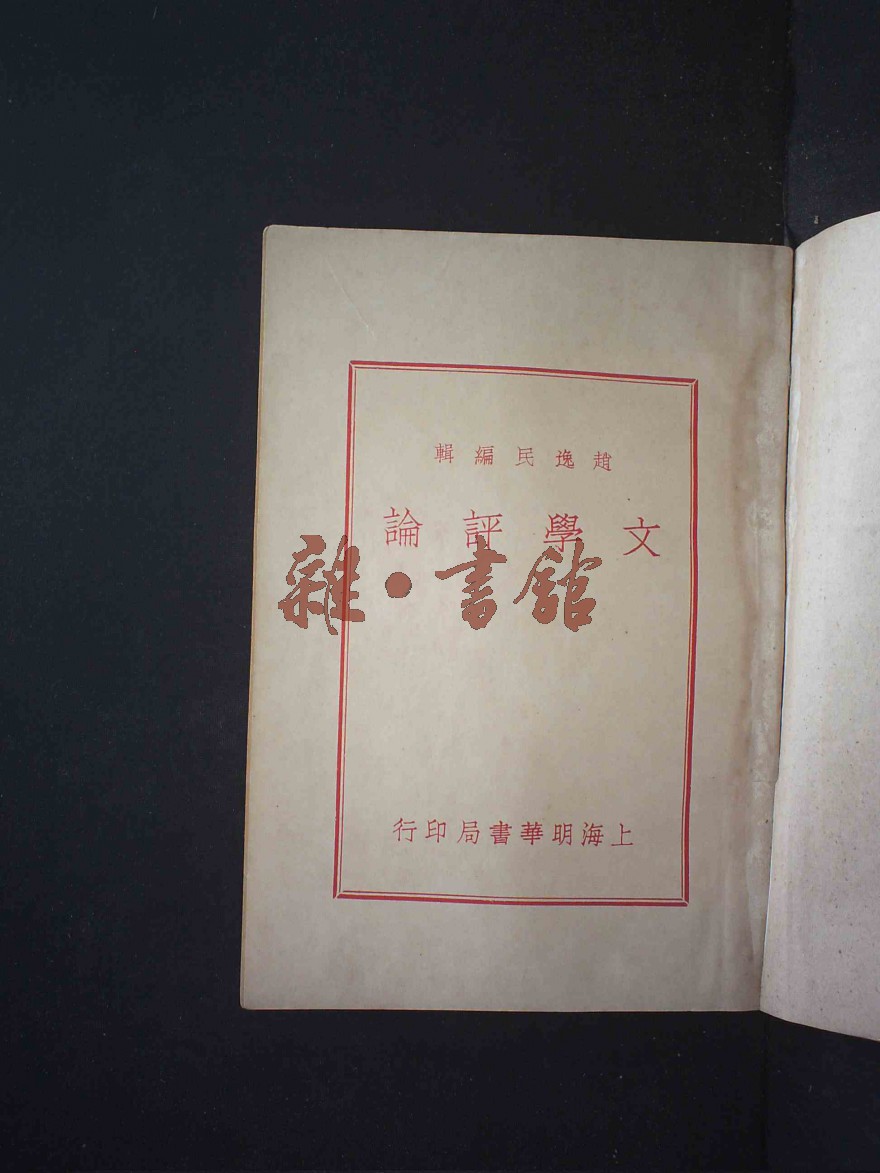 趙逸民編輯
文學評論
雜·書館
上海明華書局印行